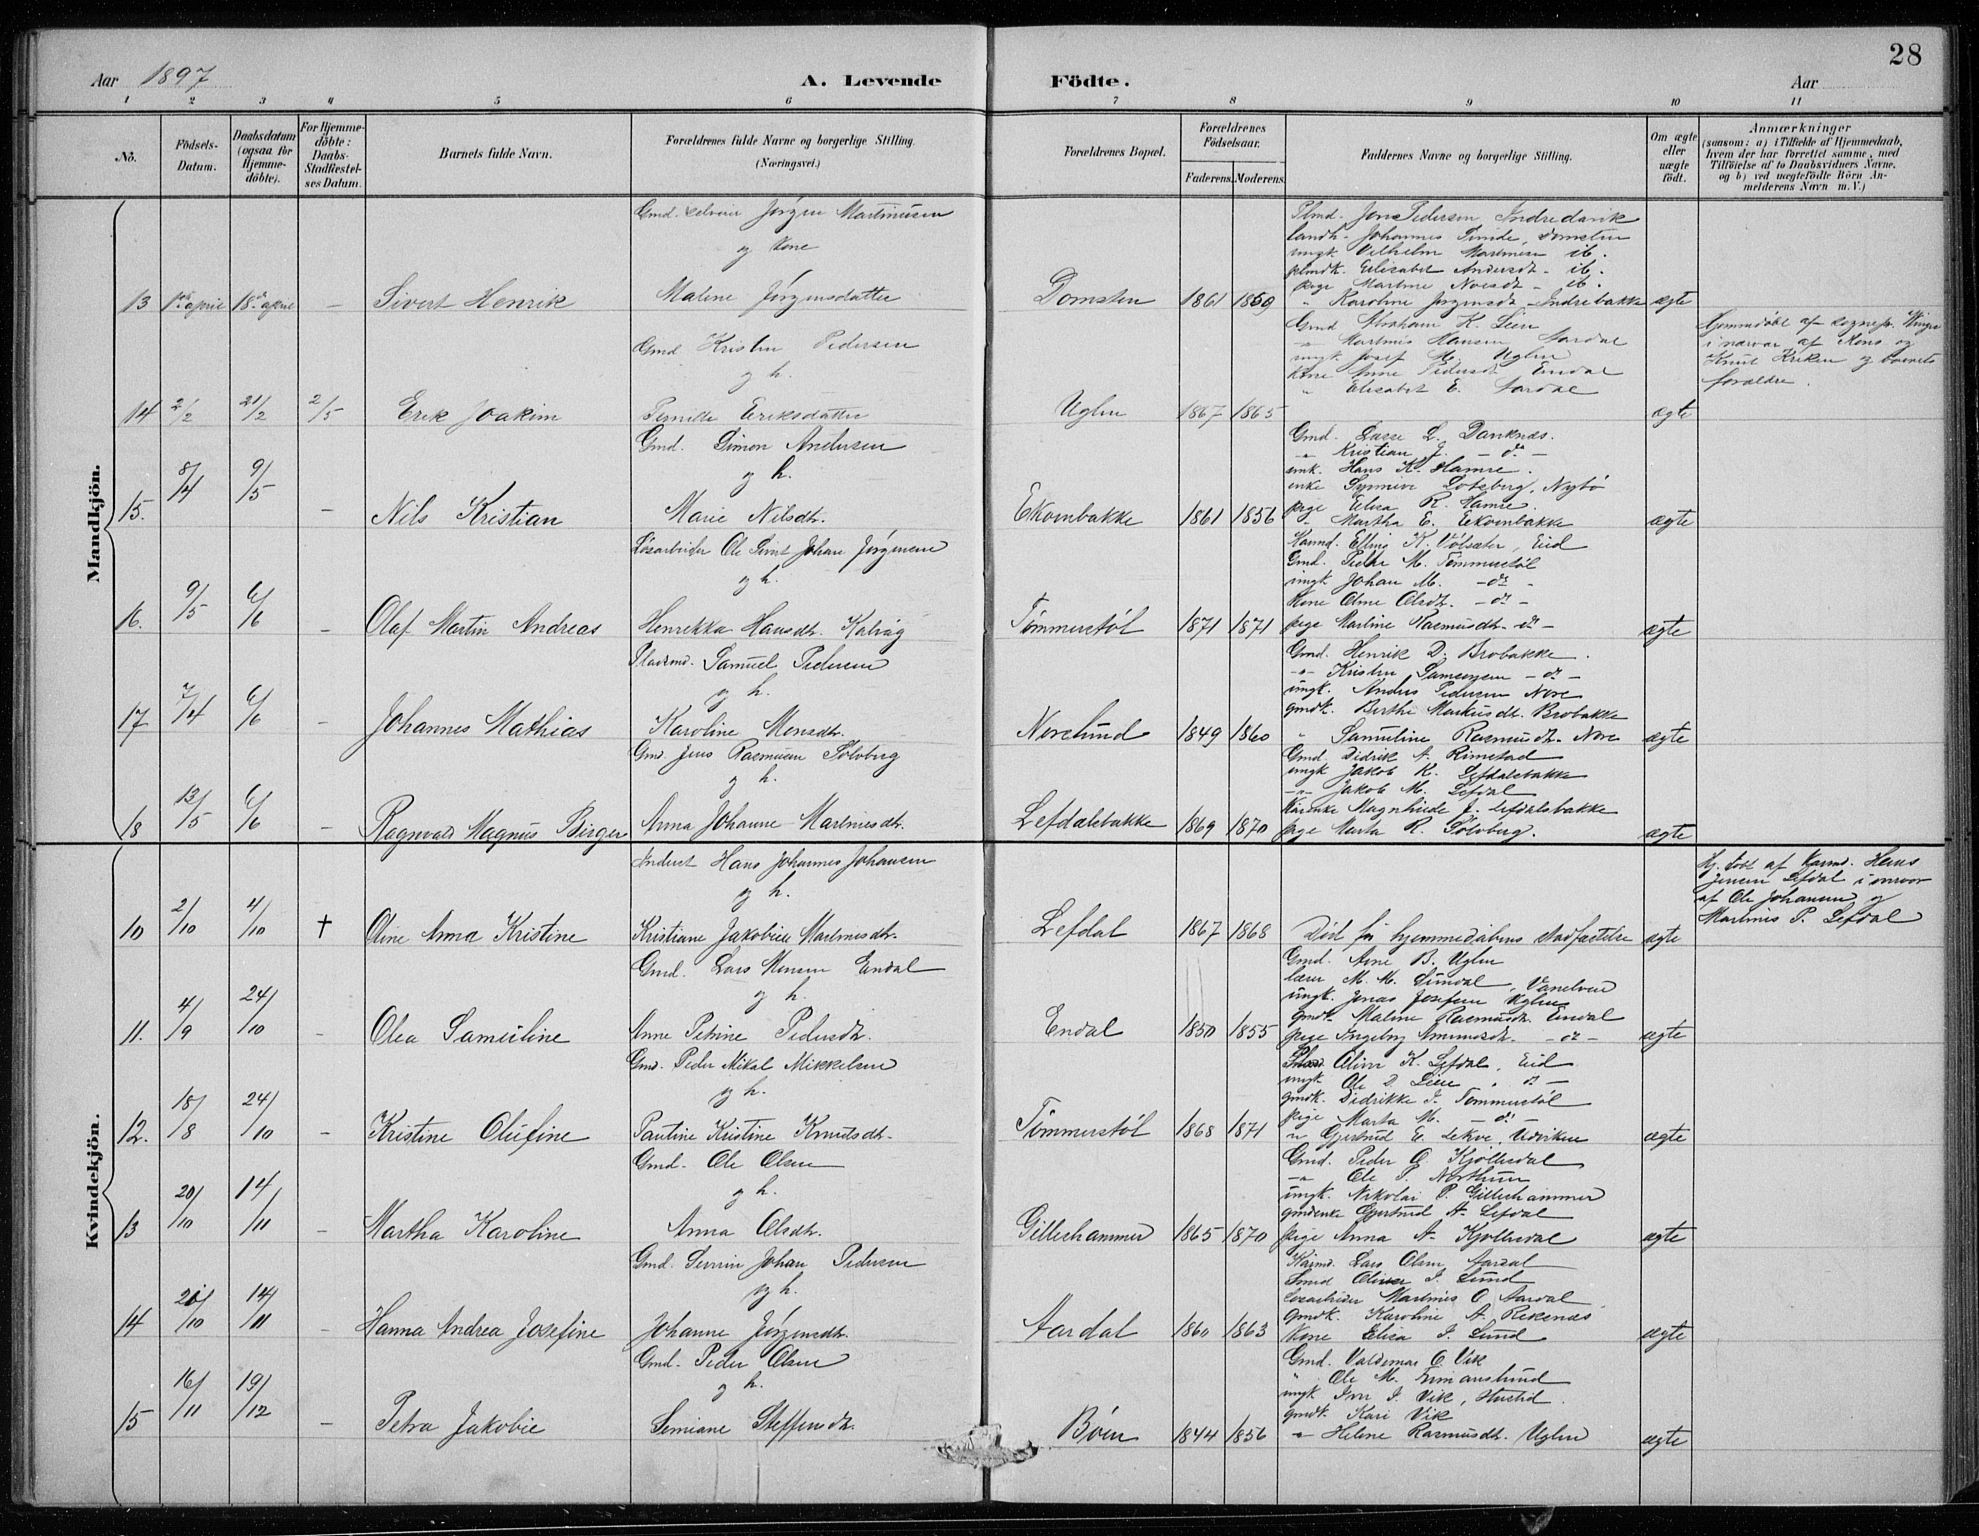 28
Aar 1897
A. Levende Födte.
Aar
1 2 3 4 5 6 7 8 9 10 11
No.
Födsels-Datum.
Daabsdatum (ogsaa for Hjemmedöbte).
For Hjemmedöbte: Daabs-Stadfæstelses Datum.
Barnets fulde Navn.
Forældrenes fulde Navne og borgerlige Stilling. (Næringsvei.)
Forældrenes Bopæl.
Forældrenes Födselsaar.
Faderens. Moderens.
Faddernes Navne og borgerlige Stilling.
Om ægte eller uægte födt.
Anmærkninger
(saasom: a) i Tilfælde af Hjemmedaab, hvem der har forrettet samme, med Tilföielse af to Daabsvidners Navne, og b) ved uægtefödte Börn Anmelderens Navn m. V.)
Mandkjön.
Gmd. Jørgen Martinusen
og Kone
Malene Jørgensdatter
13 april 18 april - Sivert Henrik
Domsten 1861 1869
Plmd. Jon Pedersen Indredavik
Landh. Johannes Tunde, Domsten
ungk. Vilhelm Martinsen ib.
plmdk. Elisabet Andersdt. ib.
pige Martine ib.
" Karoline Jørgensdt. Indrebakke
ægte
Gmd Kristen Pedersen
og h.
Pernille Eriksdatter
14 2/2 21/2 2/5 Erik Joakim
Uglen 1867 1865
Gmd Abraham K. Leen
" Martinus Hansen Aardal
ungk. Josef M. Uglen
Kone Anne Pedersdt. Endal
" Elisabet E. Aardal
ægte
Hjemmedöbt af sognepr. Winge
i nærvær af Mons og
Knut Kriken og barnets
forældre.
Gmd. Simon Andersen
og h.
Marie Nilsdt.
15. 8/4 9/5 - Nils Kristian
Ekornbakke 1861 1856
Gmd. Lasse L. Danknæs.
" Kristian J. - do -
enk. Hans K. Hamre.
enke Synneve Lotsberg, Nybö
pige Elisa R. Hamre.
" Martha E. Eekornbakke
ægte
Løsarbeider Ole Johan Jørgensen
og h.
Henrikka Hansdt. Kalvåg
16. 9/5 6/6 - Olaf Martin Andreas
Tømmerstøl 1871 1871
Elling K. Eid
Gmd. Peder M. Tömmerstöl
ungk Johan M. - do -
Kone Olsdt. - do -
pige Martine Rasmusdt. - do -
ægte
Pladsmd. Samuel Pedersen
og h.
Karoline Monsdt.
17 7/4 6/6 - Johannes Mathias
Norelund 1849 1860
Gmd. Henrik D. Brobakke.
-"- Kristen - do -
ungk. Anders Pedersen Nore
gmdk. Berthe Markusdt. Brobakke
" Samuline Rasmusdt. Nore
ægte
Gmd Jens Rasmusen Sölvberg
og h.
Anna Johanne Martinusdt.
18 13/5 6/6 - Ragnvald Magnus Birger
Lefdalsbakke 1869 1870
Gmd. Didrik A. Rimstad
ungk Jakob K. Lefdalsbakke
-"- Jakob M. Lefdal
Magnhilde J. Lefdalsbakke
pige Marta R. Sölvberg.
ægte
Kvindekjön.
Inderst Hans Johannes Johansen
og h.
Kristiane Jakobine Martinusdt.
10 2/10 4/10 † Oline Anna Kristine
Lefdal 1867 1868
Död før hjemmedåbens stadfæstelse
ægte
Hj. döbt af Karmd. Hans
Jensen Lefdal i nærvær
af Ole Johansen og
Martinus P. Lefdal
Gmd. Lars Monsen Endal
og h.
Anne Petrine Pedersdt.
11. 4/9 24/10 - Olea Samuline
Endal 1850 1855
Gmd. Arne B. Uglen
lærer M. M. Sundal, Vanelven
ungk. Jonas Josefsen Uglen
gmdk. Malene Rasmusdt. Endal
pige Ingeborg - do -
ægte
Gmd. Peder Mikal Mikkelsen
og h.
Pauline Kristine Knutsdt.
12. 18/8 24/10 - Kristine Olufine
Tømmerstøl 1868 1871
Oliver K. Lefdal, Eid
ungk. Ole D. Leen, do -
gmdk. Didrikke J. Tømmerstøl
pige Marta M. - do -
" Gjertrud E. Lekve, Udviken
ægte
Gmd. Ole Olsen
og h.
Anna Olsdt.
13 20/10 14/11 - Martha Karoline
Gilleshammer 1865 1870
Gmd. Peder O. Kjøllesdal
-"- Ole P. Northun
ungk. Nikolai P. Gilleshammer
gmdenke Gjertrud A. Lefdal
pige Anna A. Kjøllesdal
ægte
Gmd. Severin Johan Pedersen
og h.
Johanne Jørgensdt.
14 20/10 14/11 - Hanna Andrea Josefine
Aardal 1860 1863
Kårmd. Lars Olsen Aardal
Smed Oliver J. Lund
Løsarbeider Martinus O. Aardal
gmdk. Karoline A. Rekenæs
Kone Elisa J. Lund
ægte
Gmd. Peder Olsen
og h.
Semiane Steffensdt.
15 16/11 19/12 - Petra Jakobie
Böen 1844 1856
Gmd. Valdemar O. Vik
" Ole M.
ungk Iver J. Vik,
gmdk. Kari Vik
-"- Helene Rasmusdt. Uglen
ægte